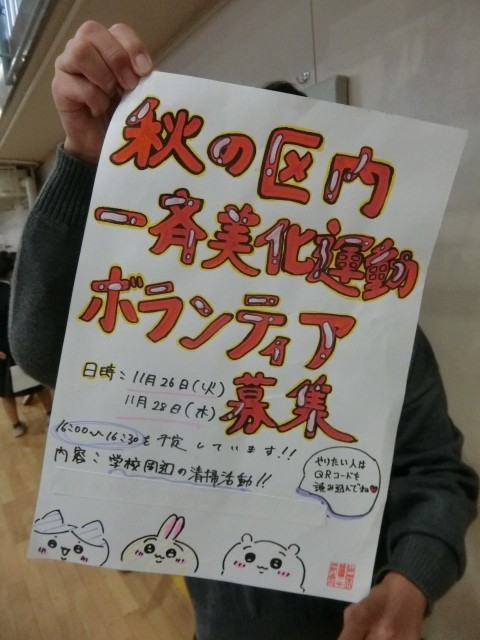 秋の区内
一斉美化運動
ボランティア
募集
日時：11月26日(火)
11月28日(木)
16:00〜16:30を予定しています!!
内容：学校周辺の清掃活動!!
やりたい人は
QRコードを
読み込んでね